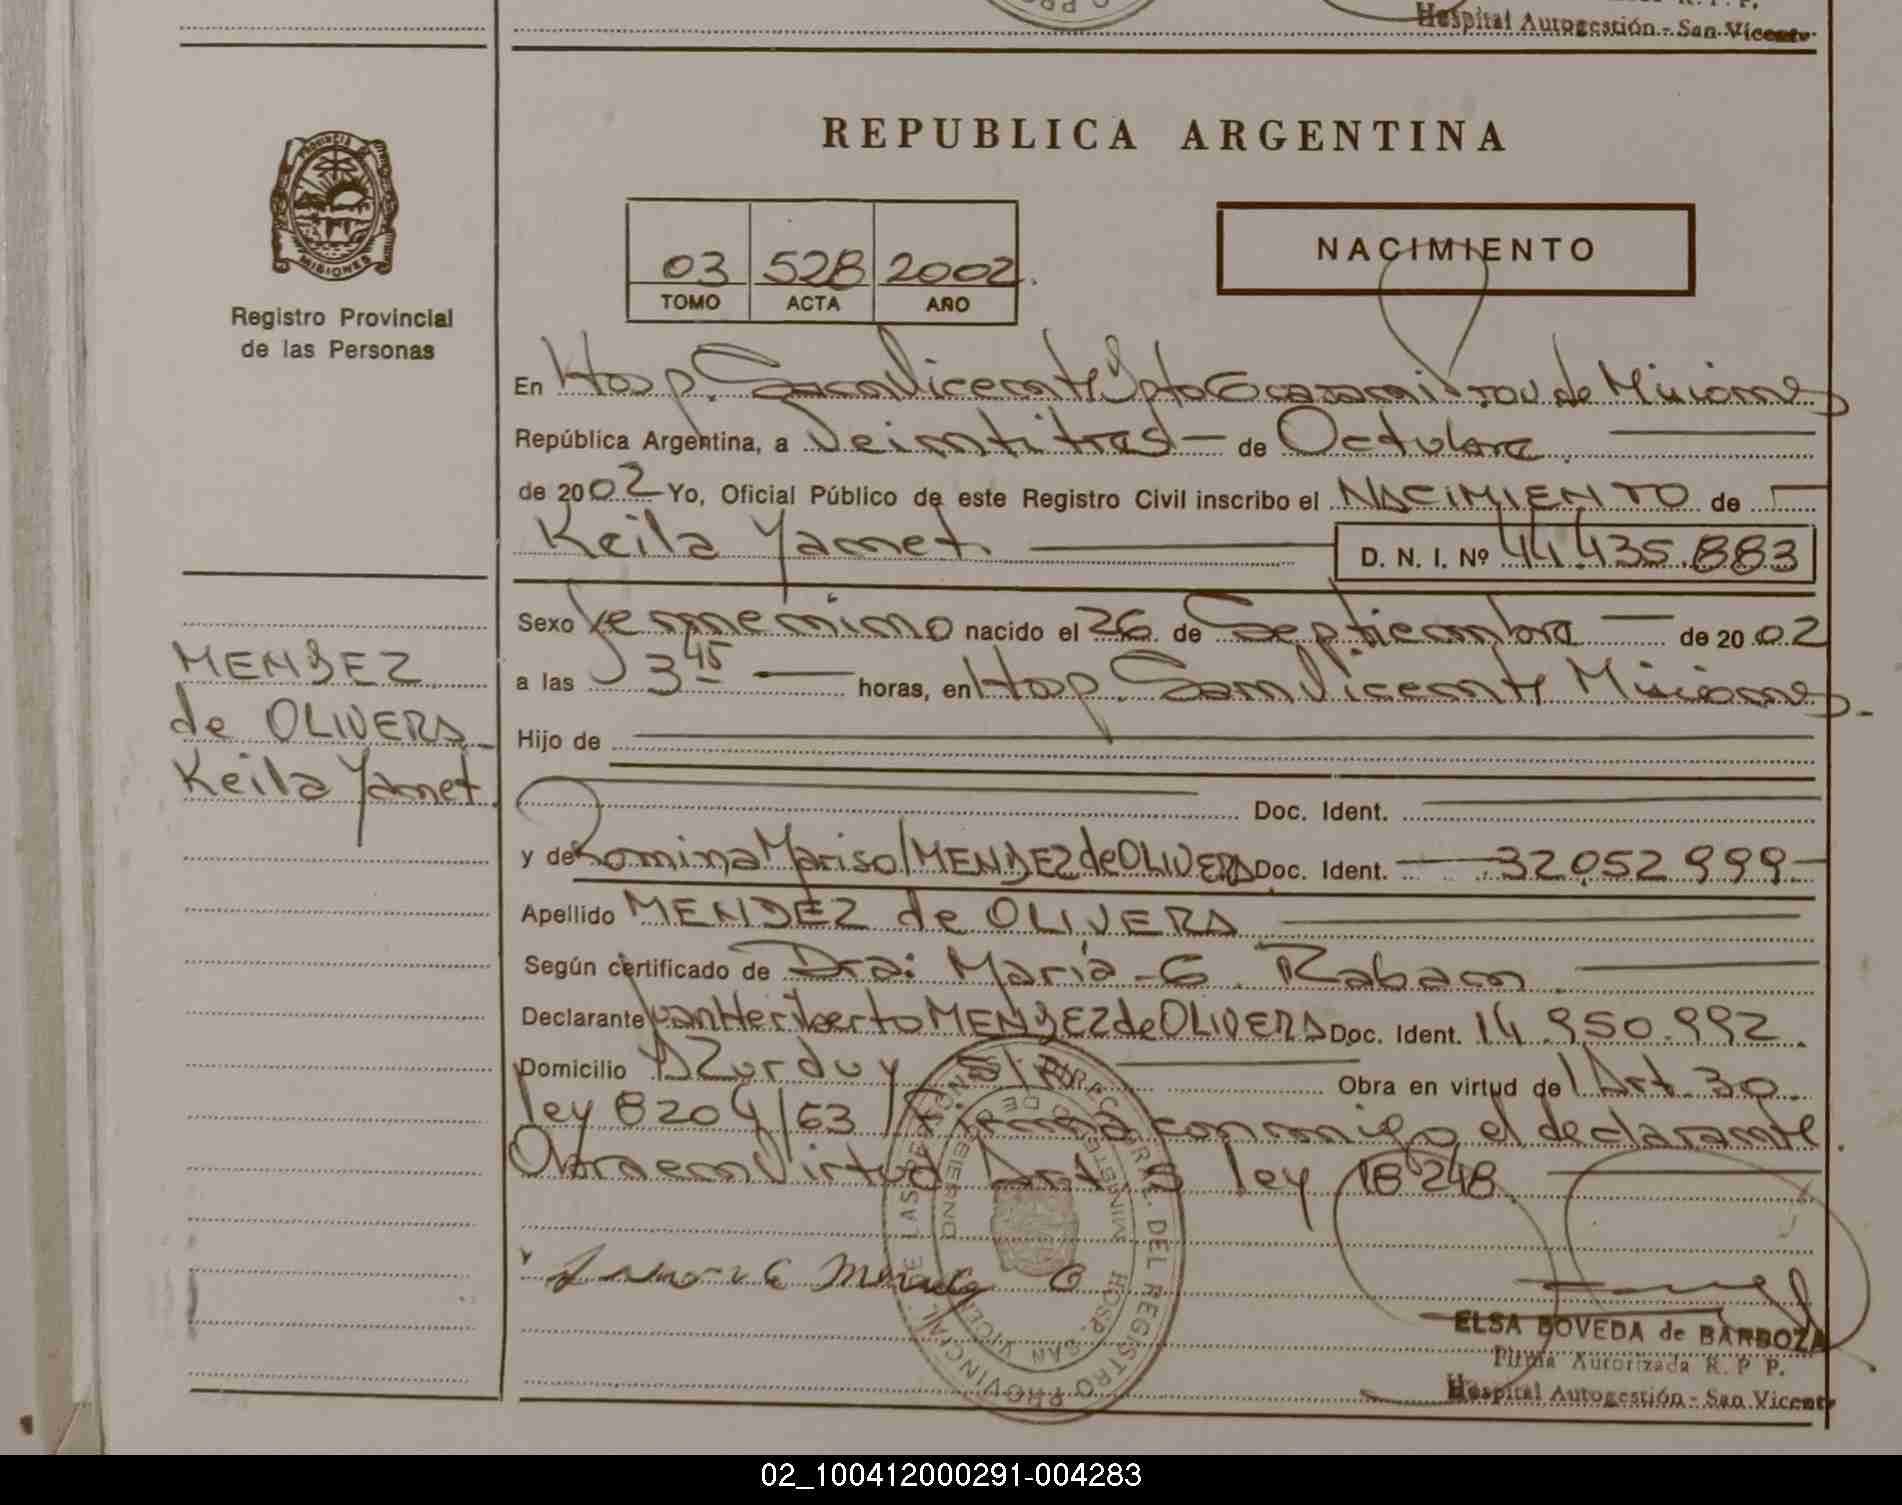 Hospital Autogestión - San Vicente
REPUBLICA ARGENTINA
PROVINCIA DE
MISIONES
Registro Provincial
de las Personas
03 528 2002.
TOMO ACTA AÑO
NACIMIENTO
En Hosp. San Vicente Dpto Guaraní Prov de Misiones
República Argentina, a Veintitres - de Octubre.
de 2002 Yo, Oficial Público de este Registro Civil inscribo el NACIMIENTO de
Keila Yamet D. N. I. Nº 44.435.883
Sexo femenino nacido el 26 de Septiembre de 2002
a las 3 45 horas, en Hosp. San Vicente Misiones.
Hijo de
Doc. Ident.
y de Romina Marisol MENDEZ de OLIVERA Doc. Ident. 32.052.999-
Apellido MENDEZ de OLIVERA
Según certificado de Dra: Maria - G. Raban.
Declarante Juan Heriberto MENDEZ de OLIVERA Doc. Ident. 14.950.992.
Domicilio AZurduy S/N. Obra en virtud del Art. 30.
ley 8204/63 / Firma conmigo el declarante.
Obra en Virtud Art 5 ley 18248.
MENDEZ
de OLIVERA
Keila Yamet
DIREC. GRAL. DEL REGISTRO PROVINCIAL DE LAS PERSONAS
MINISTERIO DE GOBIERNO
HOSP. SAN VICENTE
ELSA BOVEDA de BARBOZA
Firma Autorizada R. P. P.
Hospital Autogestión - San Vicente
02_100412000291-004283